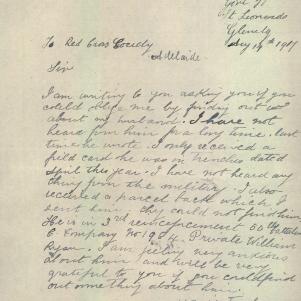 St Leonards
Glenelg
To Red Cross Society
Adelaide
Sir
I am writing to you asking you if you
could oblige me by finding out
about my husband. I have not
heard from him for a long time. last
time he wrote. I only received a
field card he was in trenches dated
April this year. I have not heard any
thing from the military. I also
received a parcel back which I
sent him. They could not find him
He is in 3rd reinforcement 50th Battalion
C Company No 1904. Private William
Ryan. I am feeling very anxious
about him and will be very
grateful to you if you could find
out something about him.